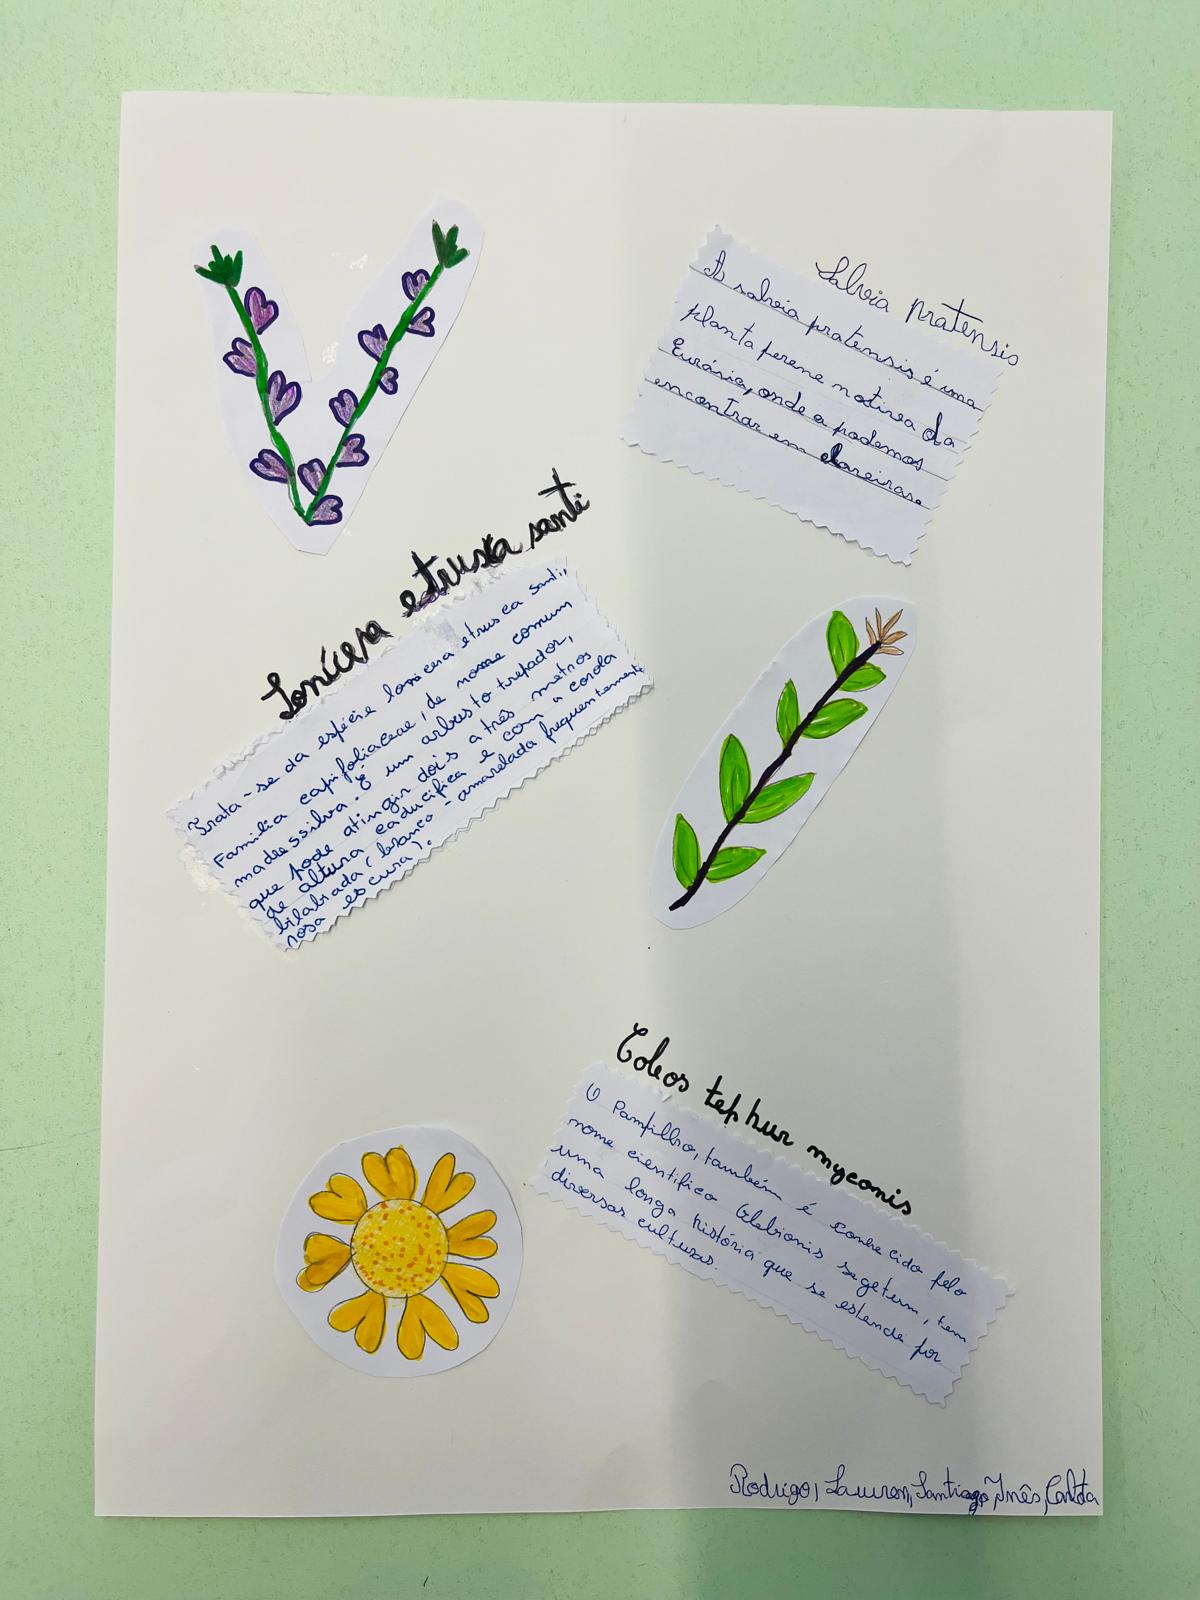 Salvia pratensis
A salvia pratensis é uma
planta perene nativa da
Eurásia, onde a podemos
encontrar em clareiras.
Lonícera etrusca santi
Trata-se da espécie lonicera etrusca santi,
Família capifoliaceae, de nome comum
madressilva. É um arbusto trepador,
que pode atingir dois a três metros
de altura caducifica e com a corola
bilabiada (branco - amarelada frequentemente
rosa escura).
Coleos tephur myconis
O Pampilho, também é conhecido pelo
nome cientifico Glebionis segetum, tem
uma longa história que se estende por
diversas culturas.
Rodrigo, Lauren, Santiago, Inês, Carlota